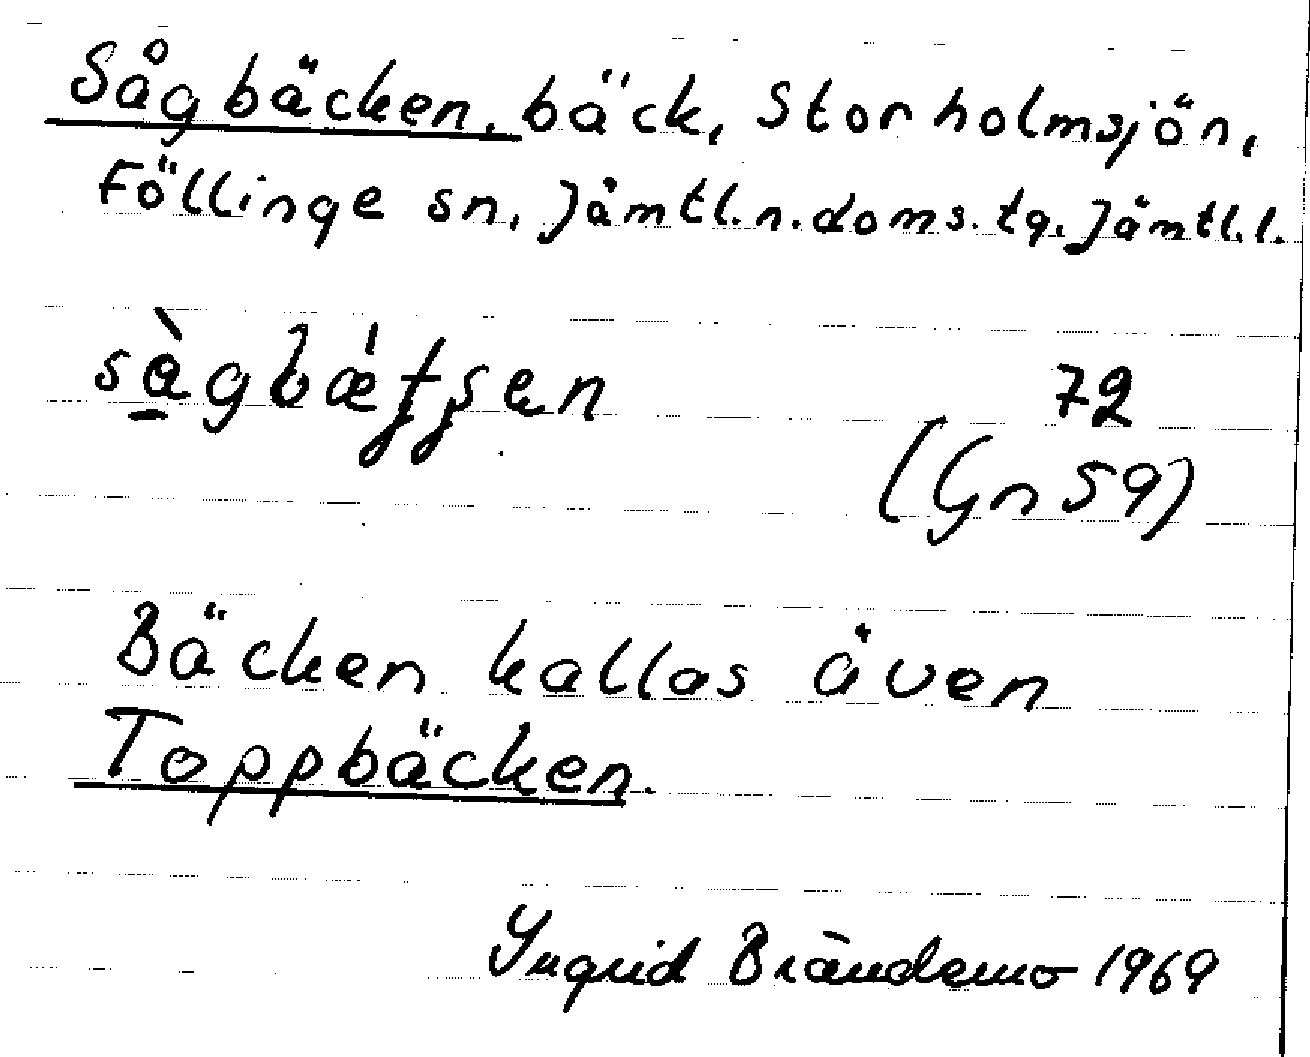 Sågbäcken, bäck, Storholmsjön,
Föllinge sn, Jämtl.n.doms.tg. Jämtl.l.
72
(Gn 59)
Bäcken kallas även
Toppbäcken.
Ingrid Brändemo 1969